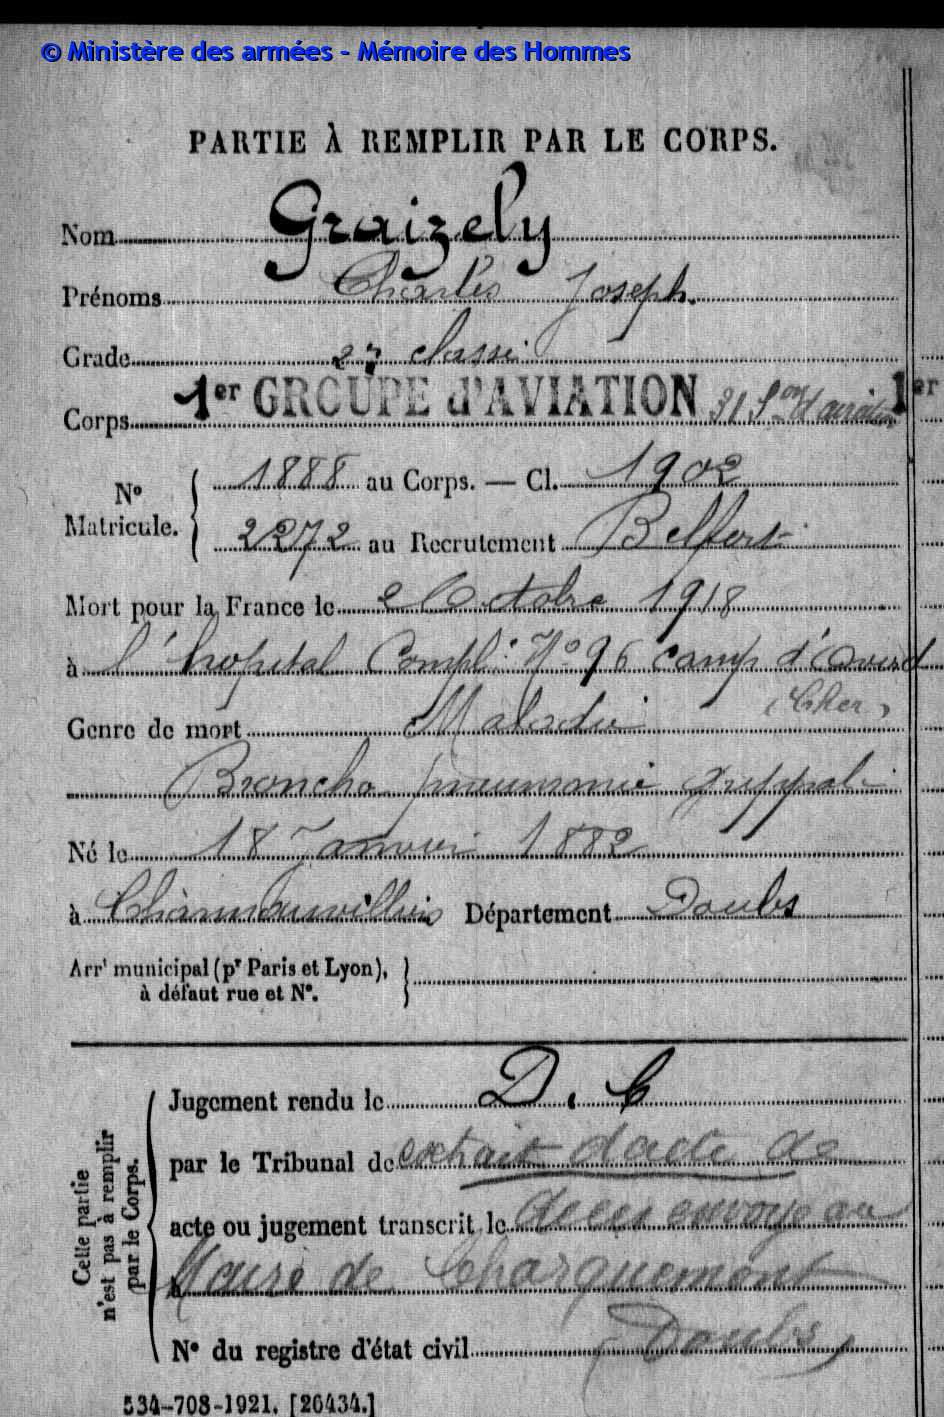 © Ministère des armées - Mémoire des Hommes
PARTIE À REMPLIR PAR LE CORPS.
Nom Graizely
Prénoms Charles Joseph.
Grade 2e classe
Corps 1er GROUPE d'AVIATION 31 Son d'aviation 1er
No Matricule. 1888 au Corps. — Cl. 1902
2272 au Recrutement Belfort
Mort pour la France le 2 Octobre 1918
à l'hopital Compl. No 96 camp d'Avord
(Cher)
Genre de mort Maladie
Broncho pneumonie grippale
Né le 18 Janvier 1882
à Charmauvillers Département Doubs
Arrt municipal (pr Paris et Lyon),
à défaut rue et No.
Jugement rendu le D. C
par le Tribunal de extrait d'acte de
acte ou jugement transcrit le décès envoyé au
Maire de Charquemont
No du registre d'état civil (Doubs)
Cette partie
n'est pas à remplir
par le Corps.
534-708-1921. [26434.]